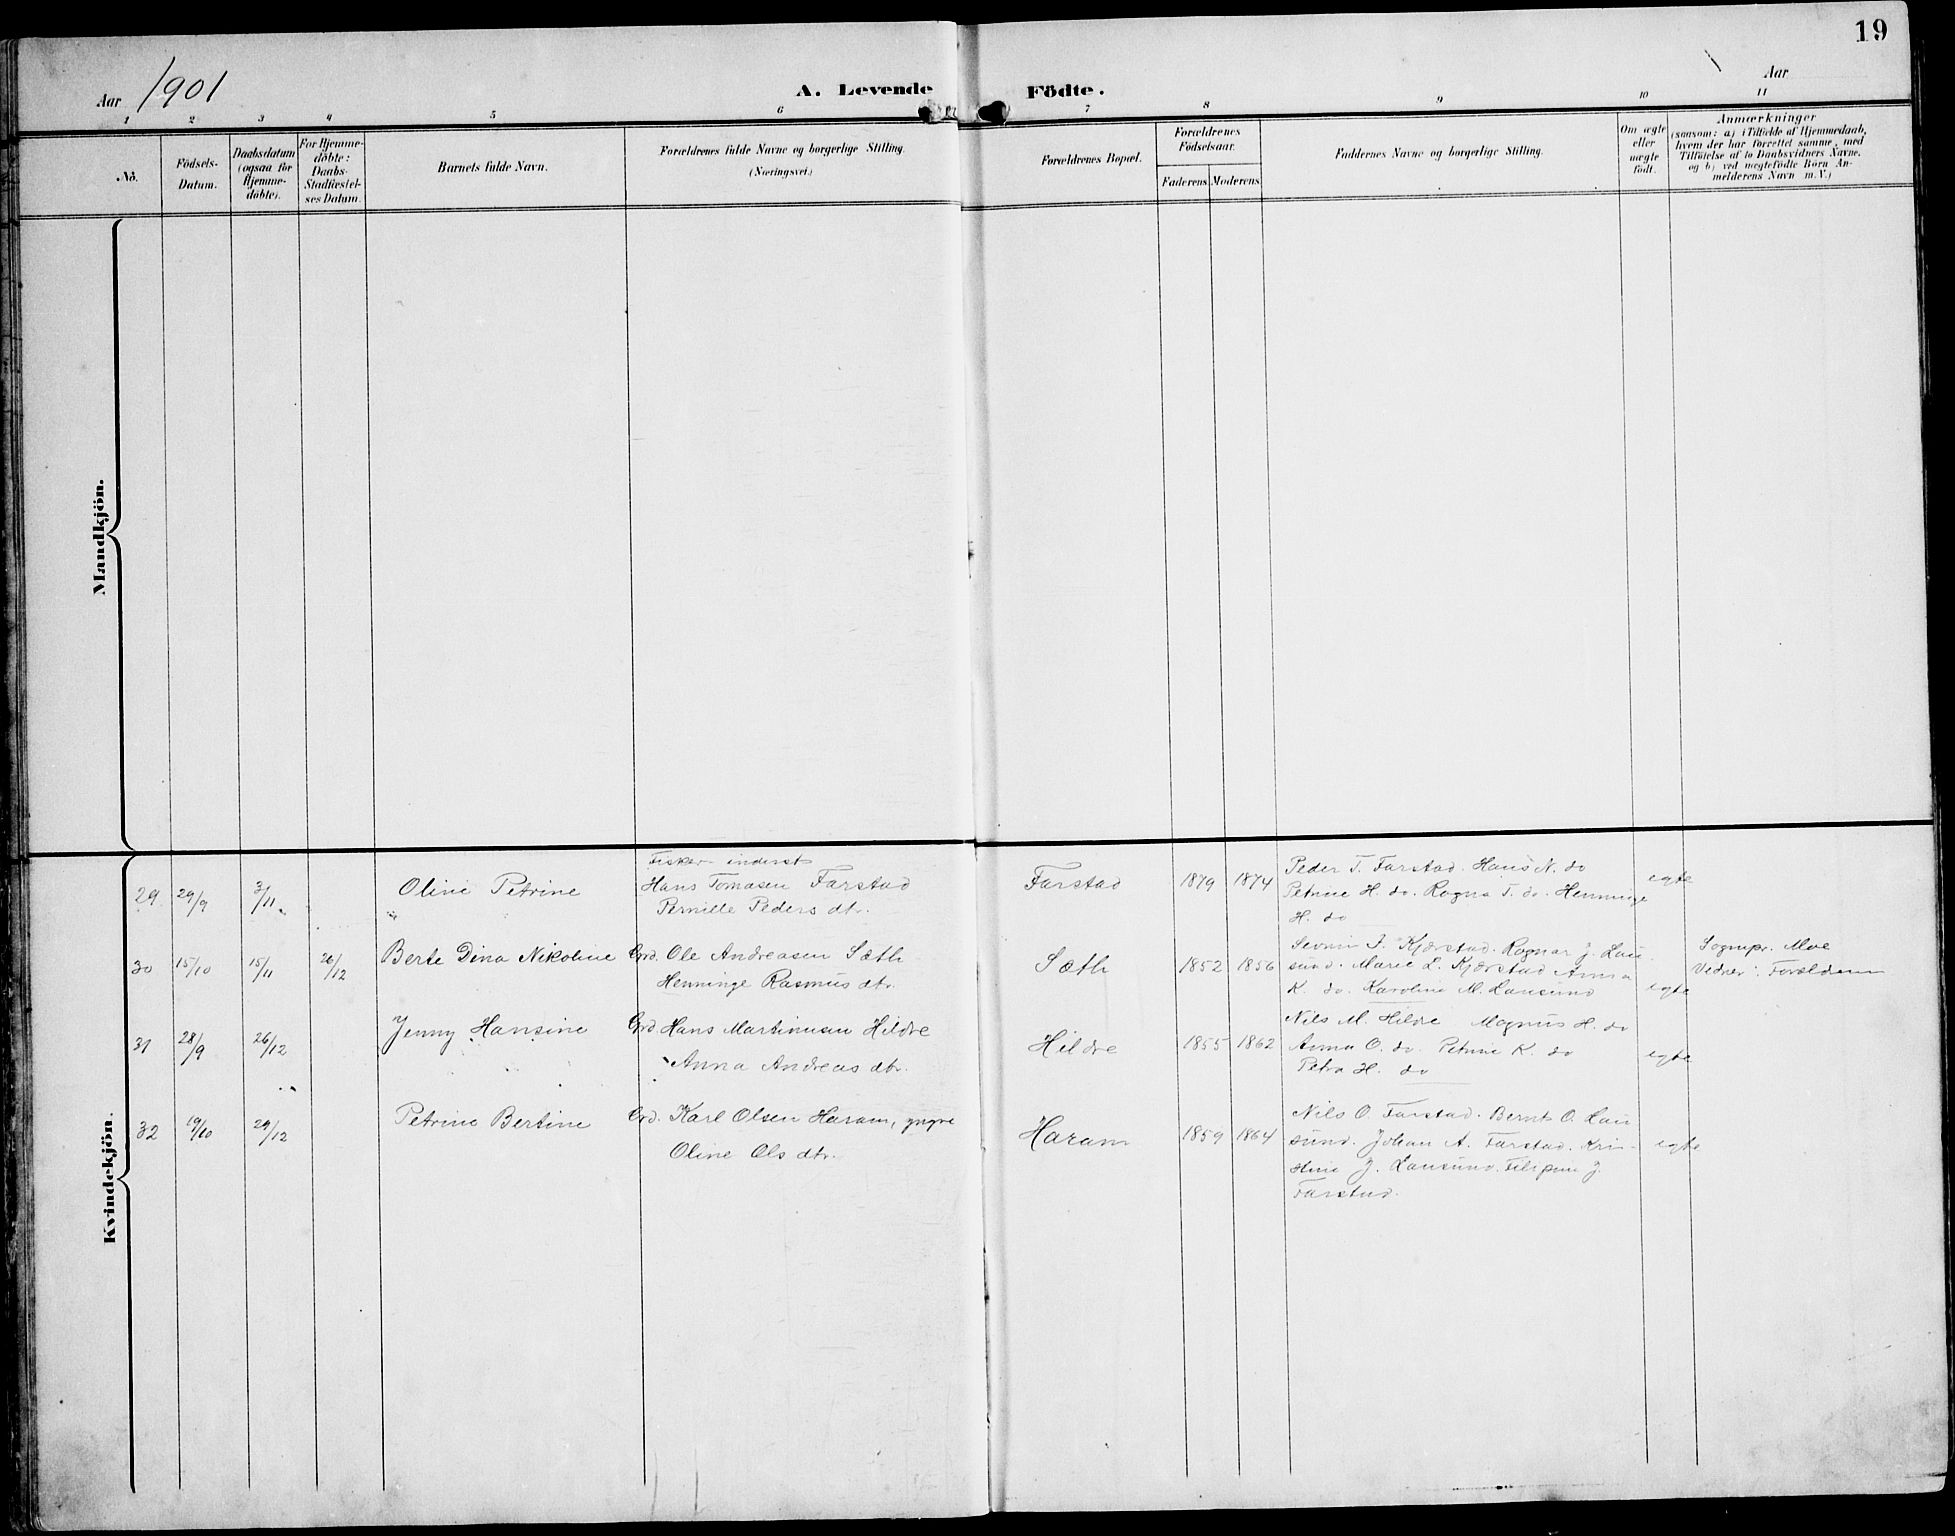 19
Aar 1901
A. Levende Födte.
Aar
1 2 3 4 5 6 7 8 9 10 11
No.
Födsels-
Datum.
Daabsdatum
(ogsaa for
Hjemme-
döbte).
For Hjemme-
döbte:
Daabs-
Stadfæstel-
ses Datum.
Barnets fulde Navn.
Forældrenes fulde Navne og borgerlige Stilling.
(Næringsvei.)
Forældrenes Bopæl.
Forældrenes
Födselsaar.
Faderens Moderens
Faddernes Navne og borgerlige Stilling.
Om ægte
eller
uægte
födt.
Anmærkninger
(saasom: a) i Tilfælde af Hjemmedaab,
hvem der har forrettet samme, med
Tilföielse af to Daabsvidners Navne.
og b) ved uægtefödte Börn An-
melderens Navn m. V.)
Mandkjön.
Kvindekjön.
29 29/9 3/11 Oline Petrine
Fisker inderst
Hans Tomasen Farstad
Pernille Peders dtr.
Farstad 1879 1874
Peder T. Farstad. Hans N. do
Petrine H. do. Ragna T. do. Henninge
H. do
egte
30 15/10 15/11 26/12 Berte Dina Nikoline
Grd. Ole Andreasen Sæth
Henninge Rasmus dtr.
Sæth 1852 1856
J. Kjærstad. Ragnar J. Lau-
sund. Marie L. Kjærstad Anna
K. do. Karoline M. Lausund
egte
Sognepr. Moe
Vidner: Forældrene
31 28/9 26/12 Jenny Hansine
Grd. Hans Martinusen Hildre
Anna Andreas dtr.
Hildre 1855 1862
Nils M. Hildre Magnus H. do
Anna O. do. Petrine K. do
Petra H. do
egte
32 19/10 29/12 Petrine Bertine
Grd. Karl Olsen Haram, yngre
Oline Ols dtr.
Haram 1859 1864
Nils O. Farstad. Bernt O. Lau-
sund. Johan A. Farstad. Kri-
stine J. Lausund. J.
Farstad.
egte